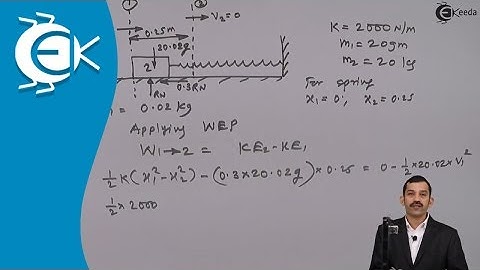 EK
Ekeeda
1
2
0.25m
V₂=0
20.02g
2
0.3RN
RN
= 0.02 kg
K = 2000 N/m
m₁ = 20gm
m₂ = 20 kg
For spring
x₁=0; x₂=0.25
Applying WEP
W1→2 = KE₂-KE₁
½K(x₁²-x₂²)-(0.3×20.02g)×0.25 = 0-½×20.02×V₁²
½×2000